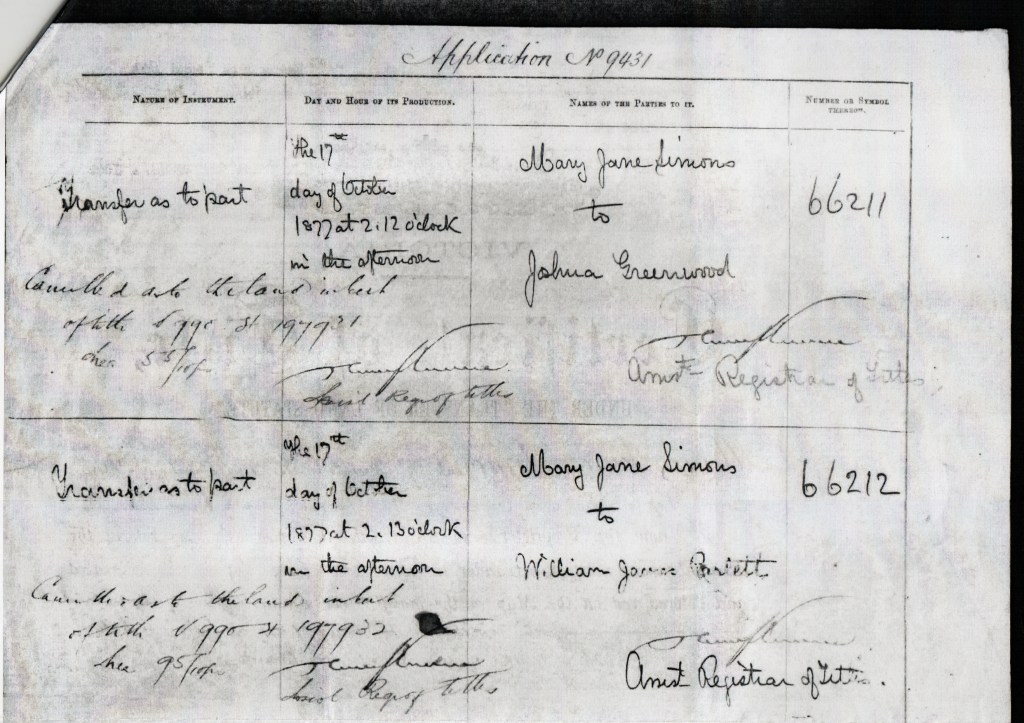 Application No 9431
NATURE OF INSTRUMENT.
DAY AND HOUR OF ITS PRODUCTION.
NAMES OF THE PARTIES TO IT.
NUMBER OR SYMBOL THEREON.
Transfer as to part
the 17th
day of October
1877 at 2.12 o'clock
in the afternoon
Mary Jane Simons
to
Joshua Greenwood
66211
Cancelled as to the land in
of title 990 197931
Regr of titles
Assist. Registrar of Titles
Transfer as to part
the 17th
day of October
1877 at 2.13 o'clock
in the afternoon
Mary Jane Simons
to
William James
66212
as to the land in
of title 990 197932
Regr of titles
Assist. Registrar of Titles.